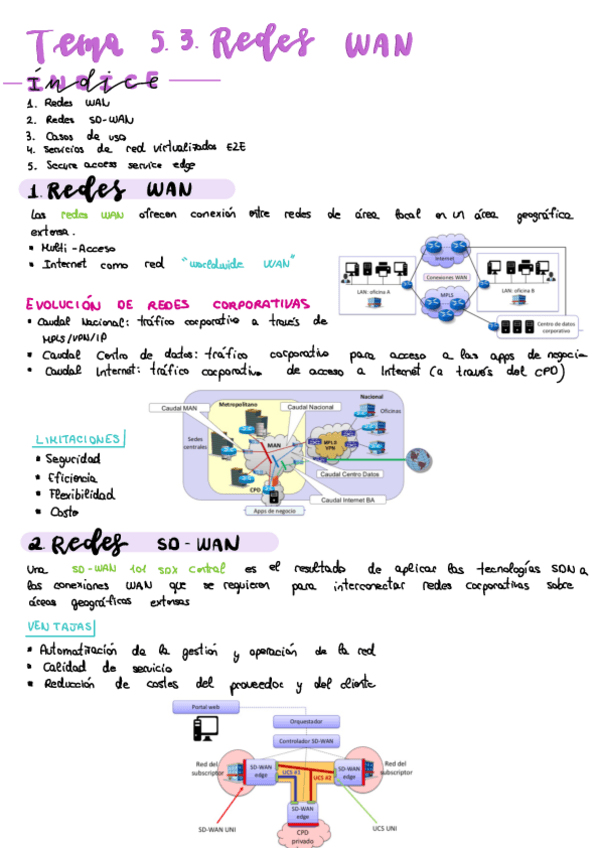 Tema 5.3. Redes WAN
índice
1. Redes WAN
2. Redes SD-WAN
3. Casos de uso
4. Servicios de red virtualizados E2E
5. Secure access service edge
1. Redes WAN
Las redes WAN ofrecen conexión entre redes de área local en un área geográfica
extensa.
▪ Multi-Acceso
▪ Internet como red "worldwide WAN"
Internet
LAN: oficina A
Conexiones WAN
LAN: oficina B
MPLS
Centro de datos
corporativo
EVOLUCIÓN DE REDES CORPORATIVAS
▪ Caudal Nacional: tráfico corporativo a través de
MPLS/VPN/IP
▪ Caudal Centro de datos: tráfico corporativo para acceso a las apps de negocio
▪ Caudal Internet: tráfico corporativo de acceso a Internet (a través del CPD)
Caudal MAN
Metropolitano
Caudal Nacional
Nacional
Oficinas
Sedes
centrales
MAN
MPLS
VPN
Caudal Centro Datos
CPD
Caudal Internet BA
Apps de negocio
LIMITACIONES
▪ Seguridad
▪ Eficiencia
▪ Flexibilidad
▪ Coste
2. Redes SD-WAN
Una SD-WAN es el resultado de aplicar las tecnologías SDN a
las conexiones WAN que se requieren para interconectar redes corporativas sobre
áreas geográficas extensas
VENTAJAS
▪ Automatización de la gestión y operación de la red
▪ Calidad de servicio
▪ Reducción de costes del proveedor y del cliente
Portal web
Orquestador
Controlador SD-WAN
Red del
subscriptor
SD-WAN
edge
UCS #1
UCS #2
SD-WAN
edge
Red del
subscriptor
SD-WAN
edge
SD-WAN UNI
CPD
privado
UCS UNI